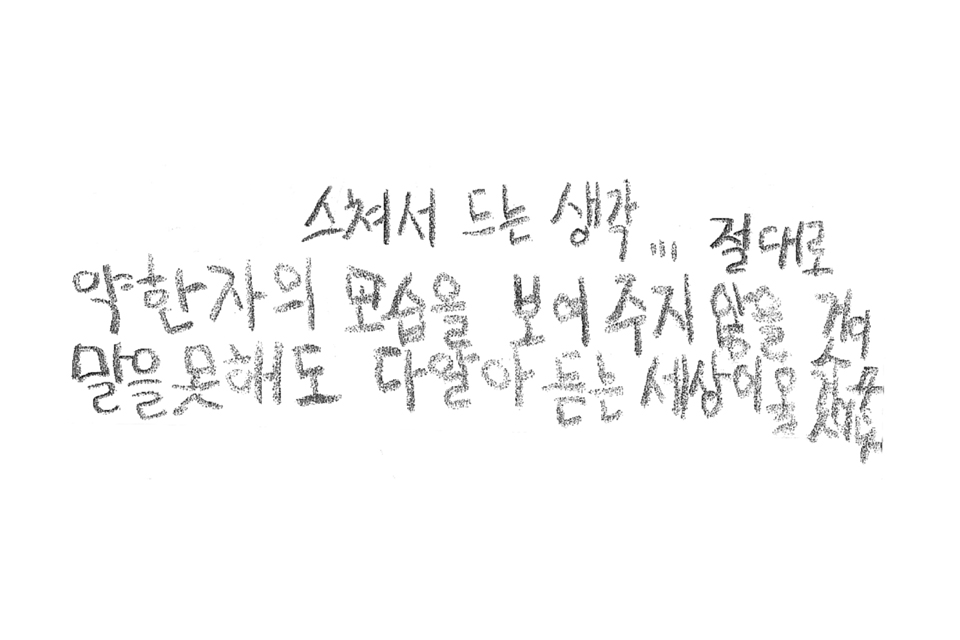 스쳐서 드는 생각... 절대로
약한자의 모습을 보여주지 않을 것이
말을못해도 다알아 듣는 세상이올